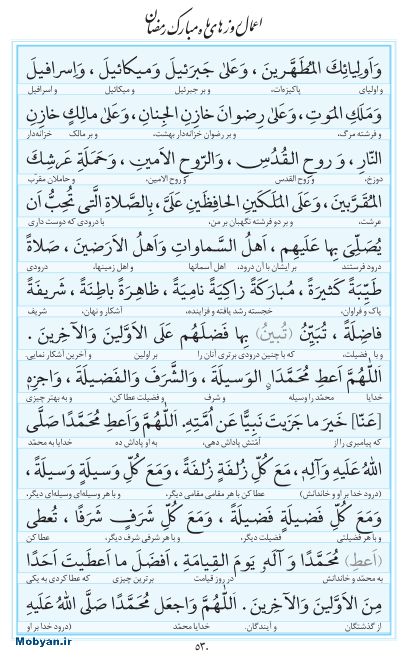 اعمال روزهای ماه مبارک رمضان
وَاَولِيائِكَ المُطَهَّرينَ ، وَعَلىٰ جَبرَئيلَ وَميكائيلَ ، وَاِسرافيلَ
و اولیای پاکیزه‌ات، و بر جبرئیل و میکائیل و اسرافیل
وَمَلَكِ المَوتِ، وَعَلىٰ رِضوانَ خازِنِ الجِنانِ، وَعَلىٰ مالِكٍ خازِنِ
و فرشته مرگ، و بر رضوان خزانه‌دار بهشت، و بر مالک خزانه‌دار
النّارِ ، وَ روحِ القُدُسِ ، وَالرّوحِ الاَمينِ ، وَحَمَلَةِ عَرشِكَ
دوزخ، و روح القدس و روح الامین، و حاملان مقرّب
المُقَرَّبينَ، وَعَلَى المَلَكَينِ الحافِظَينِ عَلَيَّ، بِالصَّلاةِ الَّتي تُحِبُّ اَن
عرشت، و بر دو فرشته نگهبان بر من، با درودی که دوست داری
يُصَلِّيَ بِها عَلَيهِم ، اَهلُ السَّماواتِ وَاَهلُ الاَرَضينَ ، صَلاةً
درود فرستند بر ایشان با آن درود، اهل آسمانها و اهل زمینها، درودی
طَيِّبَةً كَثيرَةً ، مُبارَكَةً زاكِيَةً نامِيَةً ، ظاهِرَةً باطِنَةً ، شَريفَةً
پاک و فراوان، خجسته رشد یافته و فزاینده، آشکار و نهان، شریف
فاضِلَةً ، تُبَيِّنُ (تُبينُ) بِها فَضلَهُم عَلَى الاَوَّلينَ وَالآخِرينَ .
و با فضیلت، که با چنین درودی برتری آنان را بر اولین و آخرین آشکار نمایی.
اَللّٰهُمَّ اَعطِ مُحَمَّدًا الوَسيلَةَ ، وَالشَّرَفَ وَالفَضيلَةَ ، وَاجزِهِ
خدایا محمّد را وسیله و شرف و فضیلت عطا کن، و به بهتر چیزی
[عَنّا] خَيرَ ما جَزَيتَ نَبِيًّا عَن اُمَّتِهِ. اَللّٰهُمَّ وَاَعطِ مُحَمَّدًا صَلَّى
که پیامبری را از اُمّتش پاداش دهی، به او پاداش ده خدایا به محمّد
اللهُ عَلَيهِ وَآلِهِ، مَعَ كُلِّ زُلفَةٍ زُلفَةً، وَمَعَ كُلِّ وَسيلَةٍ وَسيلَةً ،
(درود خدا بر او و خاندانش) عطا کن با هر مقامی مقامی دیگر، و با هر وسیله‌ای وسیله‌ای دیگر،
وَمَعَ كُلِّ فَضيلَةٍ فَضيلَةً ، وَمَعَ كُلِّ شَرَفٍ شَرَفًا ، تُعطي
و با هر فضیلتی فضیلتی دیگر، و با هر شرفی شرف دیگر، عطا کن
(اَعطِ) مُحَمَّدًا وَ آلَهُ يَومَ القِيامَةِ ، اَفضَلَ ما اَعطَيتَ اَحَدًا
به محمّد و خاندانش در روز قیامت برترین چیزی که عطا کردی به یکی
مِنَ الاَوَّلينَ وَالآخِرينَ . اَللّٰهُمَّ وَاجعَل مُحَمَّدًا صَلَّى اللهُ عَلَيهِ
از گذشتگان و آیندگان. خدایا محمّد (درود خدا بر او
۵۳۰
Mobyan.ir